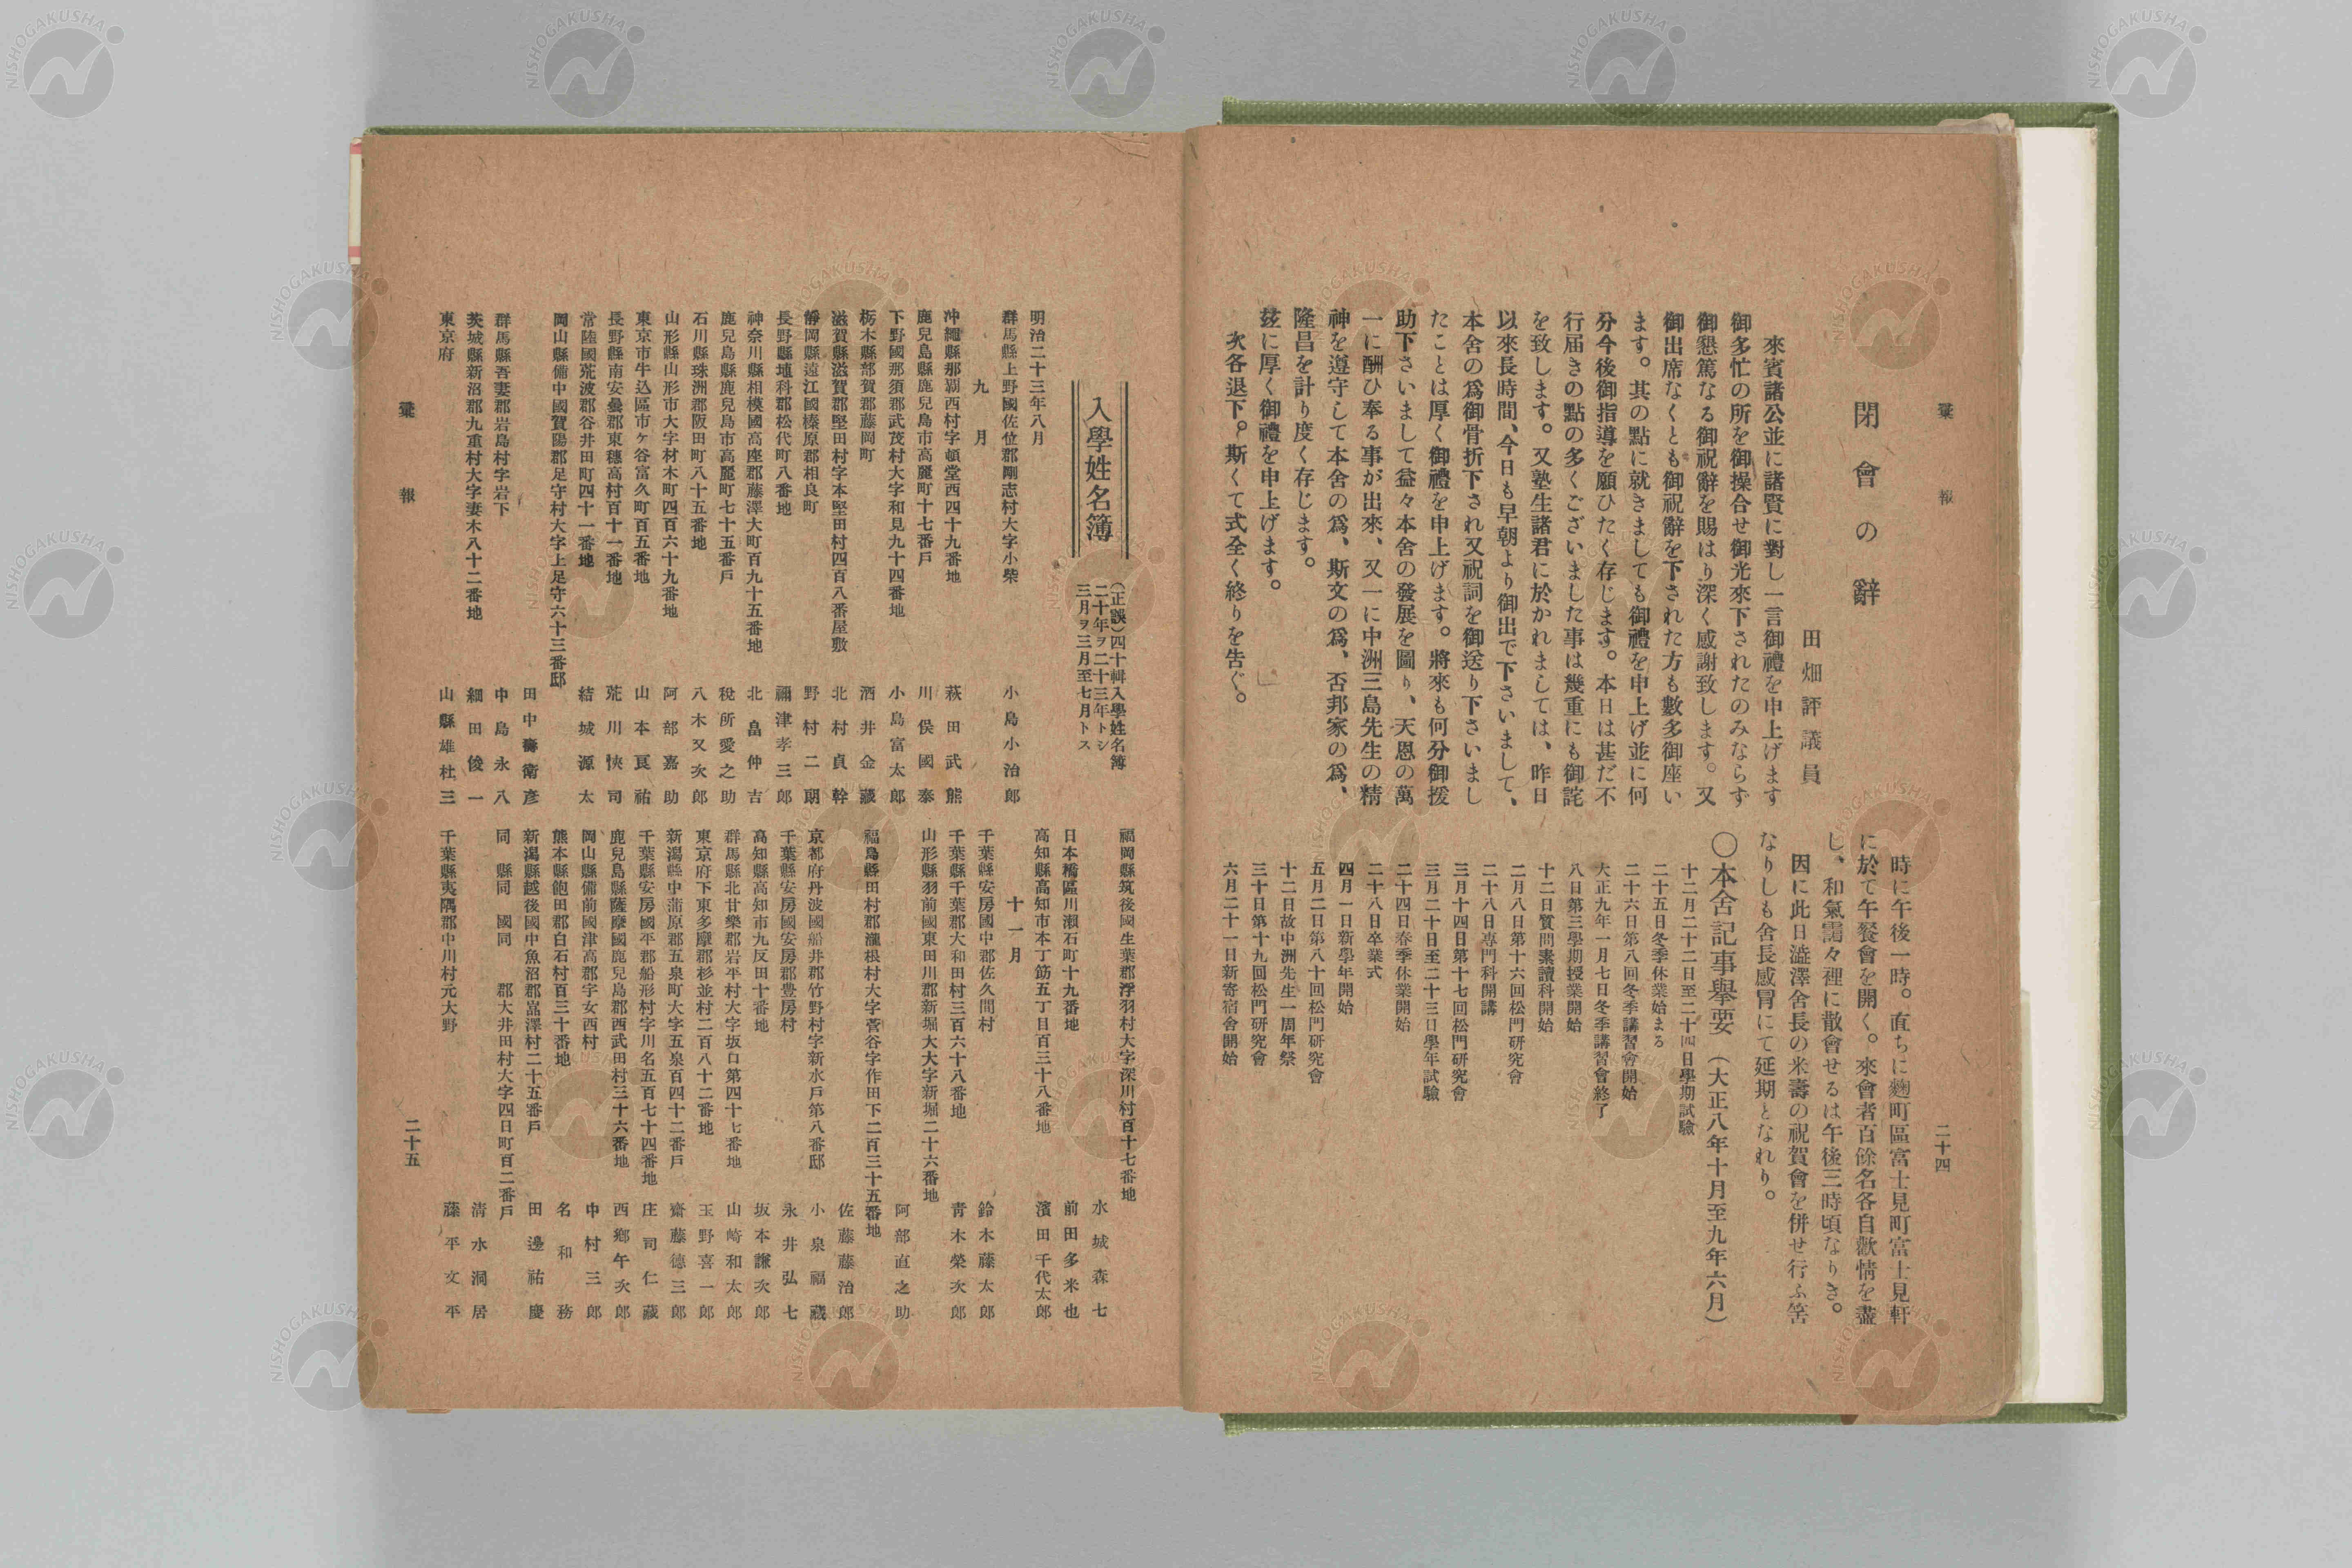 彙報
二十四
閉會の辭
田畑評議員
來賓諸公並に諸賢に對し一言御禮を申上げます
御多忙の所を御操合せ御光來下されたのみならず
御懇篤なる御祝辭を賜はり深く感謝致します。又
御出席なくとも御祝辭を下された方も數多御座い
ます。其の點に就きましても御禮を申上げ並に何
分今後御指導を願ひたく存じます。本日は甚だ不
行届きの點の多くございました事は幾重にも御詫
を致します。又塾生諸君に於かれましては、昨日
以來長時間、今日も早朝より御出で下さいまして、
本舍の爲御骨折下され又祝詞を御送り下さいまし
たことは厚く御禮を申上げます。將來も何分御援
助下さいまして益々本舍の發展を圖り、天恩の萬
一に酬ひ奉る事が出來、又一に中洲三島先生の精
神を遵守して本舍の爲、斯文の爲、否邦家の爲、
隆昌を計り度く存じます。
玆に厚く御禮を申上げます。
次各退下。斯くて式全く終りを告ぐ。
時に午後一時。直ちに麹町區富士見町富士見軒
に於て午餐會を開く。來會者百餘名各自歡情を盡
し、和氣靄々裡に散會せるは午後三時頃なりき。
因に此日澁澤舍長の米壽の祝賀會を併せ行ふ筈
なりしも舍長感冒にて延期となれり。
〇本舍記事擧要（大正八年十月至九年六月）
十二月二十二日至二十四日學期試驗
二十五日冬季休業始まる
二十六日第八回冬季講習會開始
大正九年一月七日冬季講習會終了
八日第三學期授業開始
十二日質問素讀科開始
二月八日第十六回松門研究會
二十八日専門科開講
三月十四日第十七回松門研究會
三月二十日至二十三日學年試驗
二十四日春季休業開始
二十八日卒業式
四月一日新學年開始
五月二日第八十回松門研究會
十二日故中洲先生一周年祭
三十日第十九回松門研究會
六月二十一日新寄宿舍開始
入學姓名簿
（正誤）四十輯入學姓名簿
二十年ヲ二十三年トシ
三月ヲ三月至七月トス
明治二十三年八月
群馬縣上野國佐位郡剛志村大字小柴 小島小治郎
九月
沖繩縣那覇西村字頓堂西四十九番地 萩田武熊
鹿兒島縣鹿兒島市高麗町十七番戸 川俣國泰
下野國那須郡武茂村大字和見九十四番地 小島富太郎
栃木縣部賀郡藤岡町 酒井金藏
滋賀縣滋賀郡堅田村字本堅田村四百八番屋敷 北村貞幹
靜岡縣遠江國榛原郡相良町 野村二朗
長野縣埴科郡松代町八番地 禰津孝三郎
神奈川縣相模國高座郡藤澤大町百九十五番地 北畠仲吉
鹿兒島縣鹿兒島市高麗町七十五番戸 税所愛之助
石川縣珠洲郡阪田町八十五番地 八木又次郎
山形縣山形市大字材木町四百六十九番地 阿部嘉助
東京市牛込區市ケ谷富久町百五番地 山本亙祐
長野縣南安曇郡東穗高村百十一番地 荒川快司
常陸國茺波郡谷井田町四十一番地 結城源太
岡山縣備中國賀陽郡足守村大字上足守六十三番邸
田中壽衛彦
群馬縣吾妻郡岩島村字岩下 中島永八
茨城縣新沼郡九重村大字妻木八十二番地 細田俊一
東京府 山縣雄杜三
福岡縣筑後國生葉郡浮羽村大字深川村百十七番地
水城森七
日本橋區川瀬石町十九番地 前田多米也
高知縣高知市本丁筋五丁目百三十八番地 濱田千代太郎
十一月
千葉縣安房國中郡佐久間村 鈴木藤太郎
千葉縣千葉郡大和田村三百六十八番地 青木榮次郎
山形縣羽前國東田川郡新堀大大字新堀二十六番地
阿部直之助
福島縣田村郡瀧根村大字菅谷字作田下二百三十五番地
佐藤藤治郎
京都府丹波國船井郡竹野村字新水戸第八番邸 小泉福藏
千葉縣安房國安房郡豊房村 永井弘七
高知縣高知市九反田十番地 坂本謙次郎
群馬縣北甘樂郡岩平村大字坂口第四十七番地 山崎和太郎
東京府下東多摩郡杉並村二百八十二番地 玉野喜一郎
新潟縣中蒲原郡五泉町大字五泉百四十二番戸 齋藤德三郎
千葉縣安房國平郡船形村字川名五百七十四番地 庄司仁藏
鹿兒島縣薩摩國鹿兒島郡西武田村三十六番地 西郷午次郎
岡山縣備前國津高郡字女西村 中村三郎
熊本縣飽田郡白石村百三十番地 名和務
新潟縣越後國中魚沼郡嵓澤村二十五番戸 田邊祐慶
同縣同國同郡大井田村大字四日町百二番戸
清水洞居
千葉縣夷隅郡中川村元大野 藤平文平
彙報
二十五